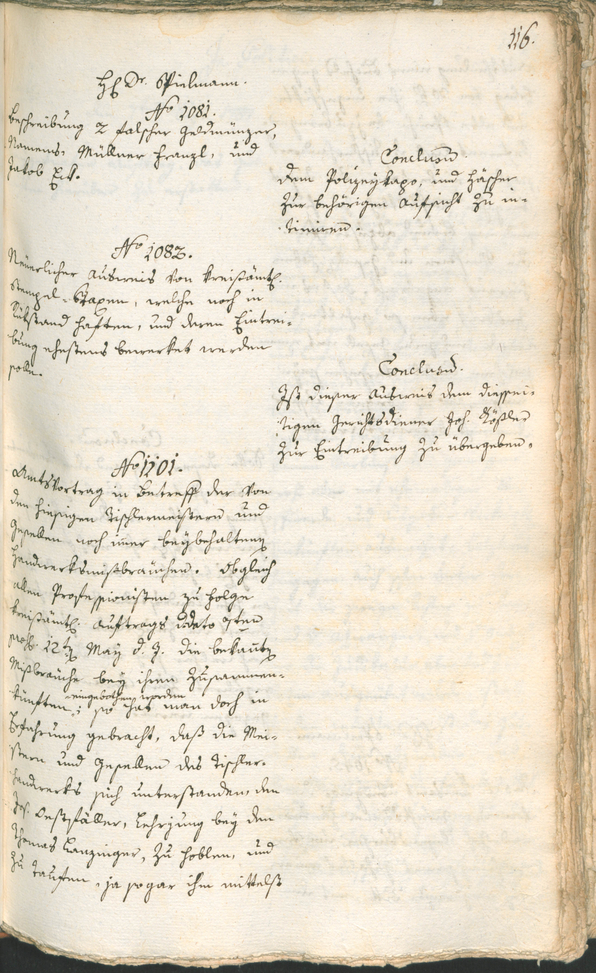 116.
H. Dr. Spielmann.
No 1081.
Beschreibung 2 falscher Geldmünzer,
Namens, Müllner Franzl, und
Jakob Eck.
Conclusum.
Dem Polizeykapo, und Häscher
zur behörigen Aufsicht zu in-
timiren.
No 1082.
Neuerlicher Ausweis von kreisämtl.
Stempel-Taxen, welche noch in
Rükstand haften, und deren Eintrei-
bung ehestens bewerket werden
solle.
Conclusum.
Ist dieser Ausweis dem diessei-
tigen Gerichtsdiener Joh. Rößler
zur Eintreibung zu übergeben.
No 1101.
Amtsvortrag in Betreff der von
den hiesigen Tischlermeistern und
Gesellen noch immer beybehaltenen
Handwerksmißbräuchen. Obgleich
allen Professionisten zu Folge
kreisämtl. Auftrags ddato 9ten
12ten May d. J. die bekante
Mißbräuche bey ihren Zusammen-
eingebothen worden
künften; so hat man doch in
Erfahrung gebracht, daß die Mei-
stern und Gesellen des Tischler-
handwerks sich unterstanden, den
Jos. Lehrjung bey dem
Thomas Lanzinger, zu hoblen, und
zu taufen, ja sogar ihm mittelst